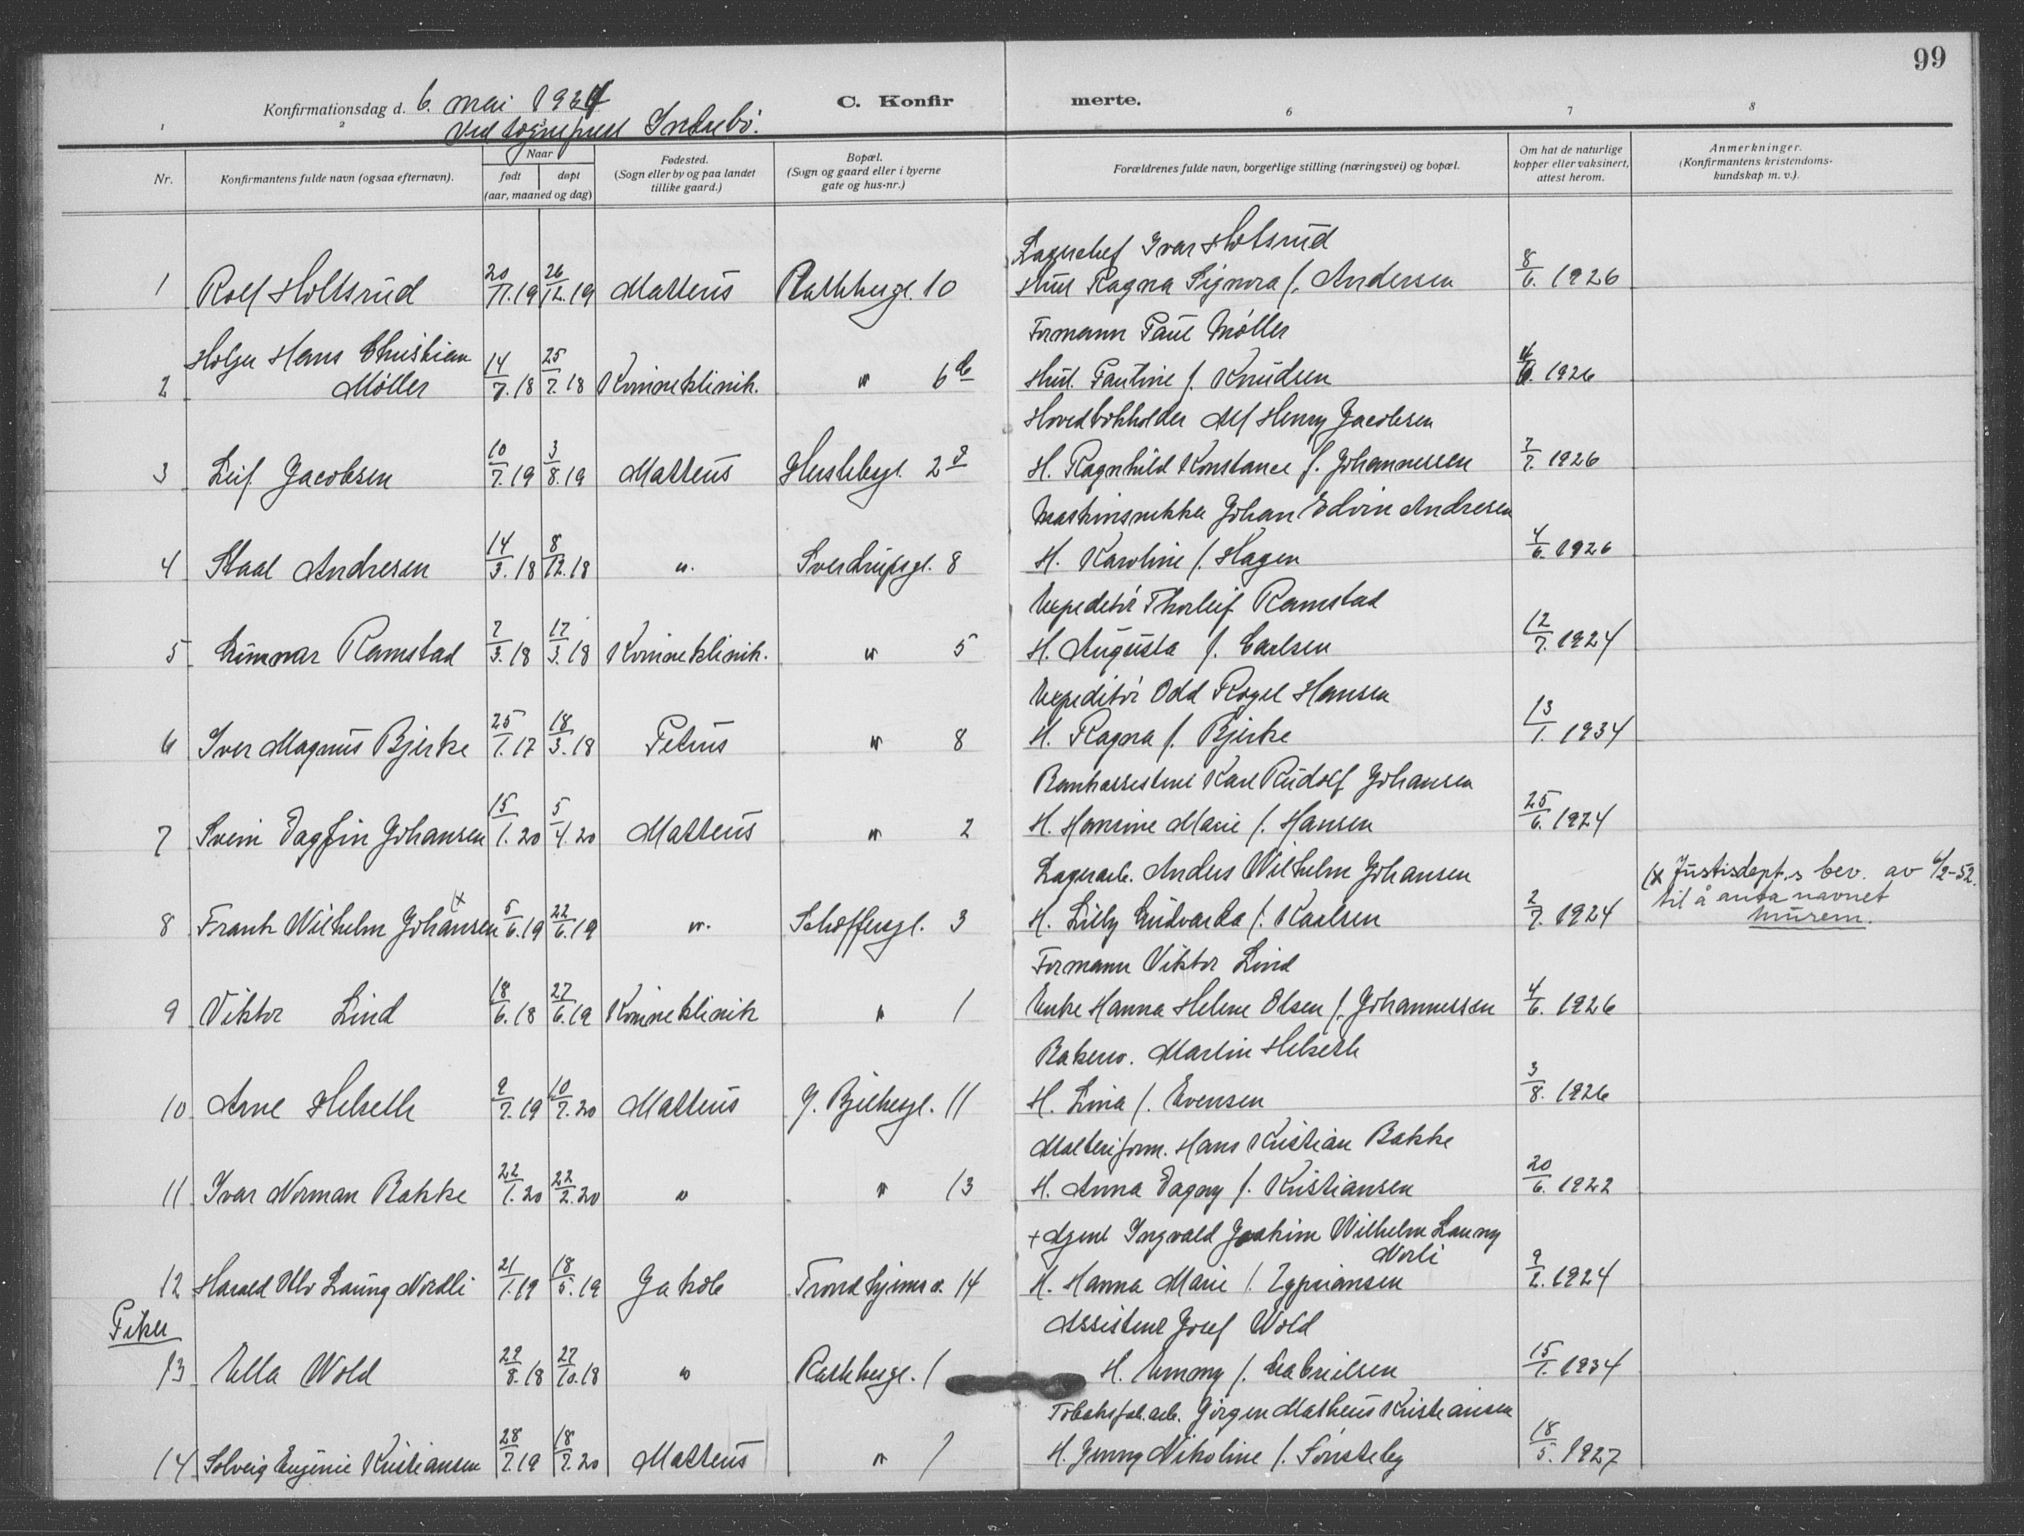 99
Konfirmationsdag d. 6. mai 1934 C. Konfirmerte.
Ved sogneprest Indrebö.
1 2 3 4 5 6 7 8
Nr.
Konfirmantens fulde navn (ogsaa efternavn).
Naar
født døpt
(aar, maaned og dag)
Fødested.
(Sogn eller by og paa landet
tillike gaard.)
Bopæl.
(Sogn og gaard eller i byerne
gate og hus-nr.)
Forældrenes fulde navn, borgerlige stilling (næringsvei) og bopæl.
Om hat de naturlige
kopper eller vaksinert,
attest herom.
Anmerkninger.
(Konfirmantens kristendoms-
kundskap m. v.).
Lagerchef Ivar Holtsrud
1 Rolf Holtsrud 20/11.19 26/12.19 Matteus Rathkesgt. 10 Hust Ragna Signora f. Andersen 8/6. 1926
Formann Paul Møller
Holger Hans Christian
2 Møller 14/7.18 25/7.18 Kvinneklinik. " 6 b Hust. Pauline f. Knudsen 4/6. 1926
Hovedbokholder Alf Henry Jacobsen
3 Leif Jacobsen 10/7.19 3/8.19 Matteus Herslebsgt. 2 H. Ragnhild Konstance f. Johannessen 7/7. 1926
Maskinsnekker Johan Edvin Andresen
4 Staal Andresen 14/3.18 8/12.18 ". Sverdrupsgt. 8 H. Karoline f. Hagen 4/6. 1926
Expeditør Thorleif Ramstad
5 Gunnar Ramstad 7/3.18 17/3.18 Kvinneklinik. " 5 H. Augusta f. Carlsen 12/7. 1924
Expeditør Odd Roger Hansen
6 Iver Magnus Bjerke 25/1.17 18/3.18 Petrus " 8 H. Ragna f. Bjerke 13/1. 1934
Bankassistent Karl Rudolf Johansen
7 Svein Dagfin Johansen 15/1.20 5/4.20 Matteus " 2 H. Hansine Marie f. Hansen 25/6. 1924
Lagerarb. Anders Wilhelm Johansen
(x Justisdept.s bev. av 6/2-52.
til å anta navnet
Murem.
8 Frank Wilhelm Johansen (x 5/6.19 22/6.19 ". Schøffersgt. 3 H. Lilly Gudvarda f. Karlsen 2/7. 1924
Formann Viktor Lind
9 Viktor Lind 18/6.18 27/6.19 Kvinneklinik " 1 Enke Hanna Helene Olsen f. Johannessen 4/6. 1926
Bakersv. Martin Helseth
10 Arne Helseth 9/7.19 10/7.20 Matteus J. Bjelkesgt. 11 H. Lina f. Evensen 3/8. 1926
Malteriform. Hans Kristian Bakke
11 Ivar Norman Bakke 22/1.20 22/2.20 " " 13 H. Anna Dagny f. Kristiansen 20/6. 1922
+ Agent Ingvald Joakim Wilhelm Launy
Norli
12 Harald Ulv Laung Nordli 21/1.19 18/5.19 Jakob Trondhjemsv. 14 H. Hanna Marie f. Zypriansen 9/2. 1924
Piker
Assistent Josef Wold
13 Ella Wold 22/8.18 27/10.18 " Rathkesgt. 1 H. Emmy f. Gabrielsen 15/1. 1934
Tobaksfab.arb. Jörgen Matheus Kristiansen
14 Solveig Eugenie Kristiansen 28/7.19 18/7.20 Matteus " 1 H. Jenny Nikoline f. Sønsteby 18/5. 1927